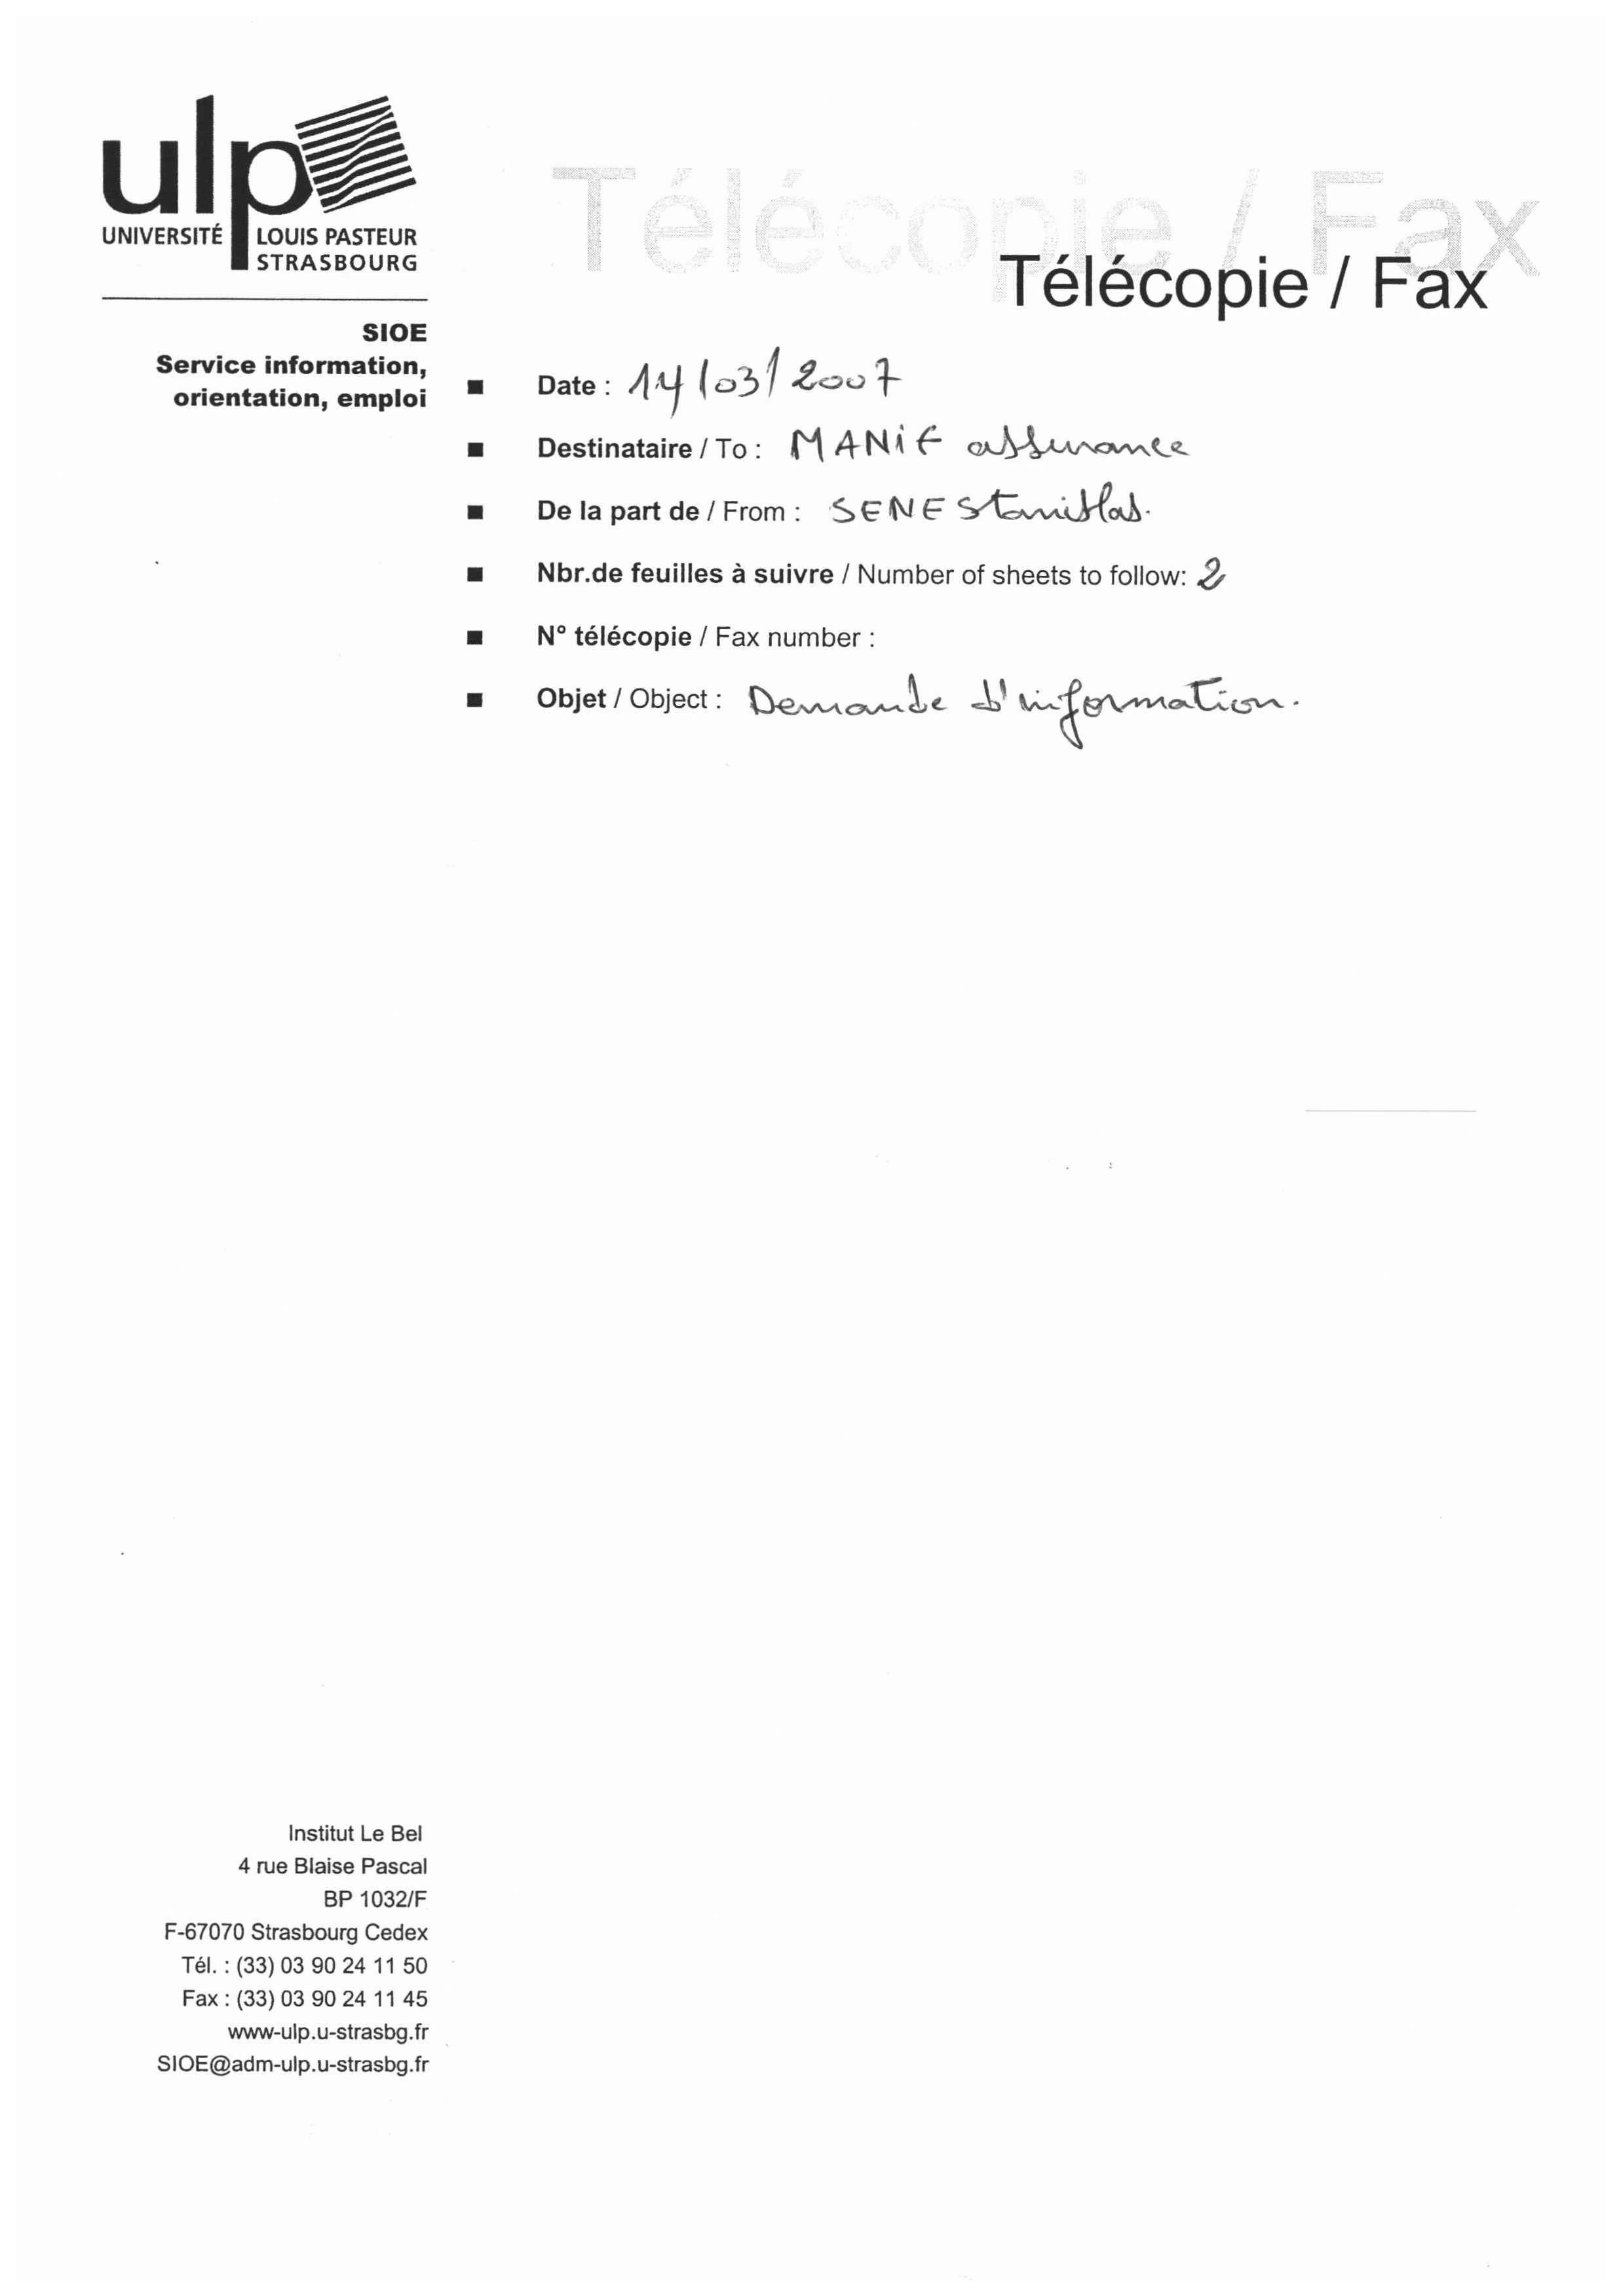 ulp
UNIVERSITÉ LOUIS PASTEUR
STRASBOURG
Télécopie / Fax
Télécopie / Fax
SIOE
Service information,
orientation, emploi
Date : 14/03/2007
Destinataire / To : MANIF assurance
De la part de / From : SENE Stanislas.
Nbr.de feuilles à suivre / Number of sheets to follow: 2
N° télécopie / Fax number :
Objet / Object : Demande d'information.
Institut Le Bel
4 rue Blaise Pascal
BP 1032/F
F-67070 Strasbourg Cedex
Tél. : (33) 03 90 24 11 50
Fax : (33) 03 90 24 11 45
www-ulp.u-strasbg.fr
SIOE@adm-ulp.u-strasbg.fr